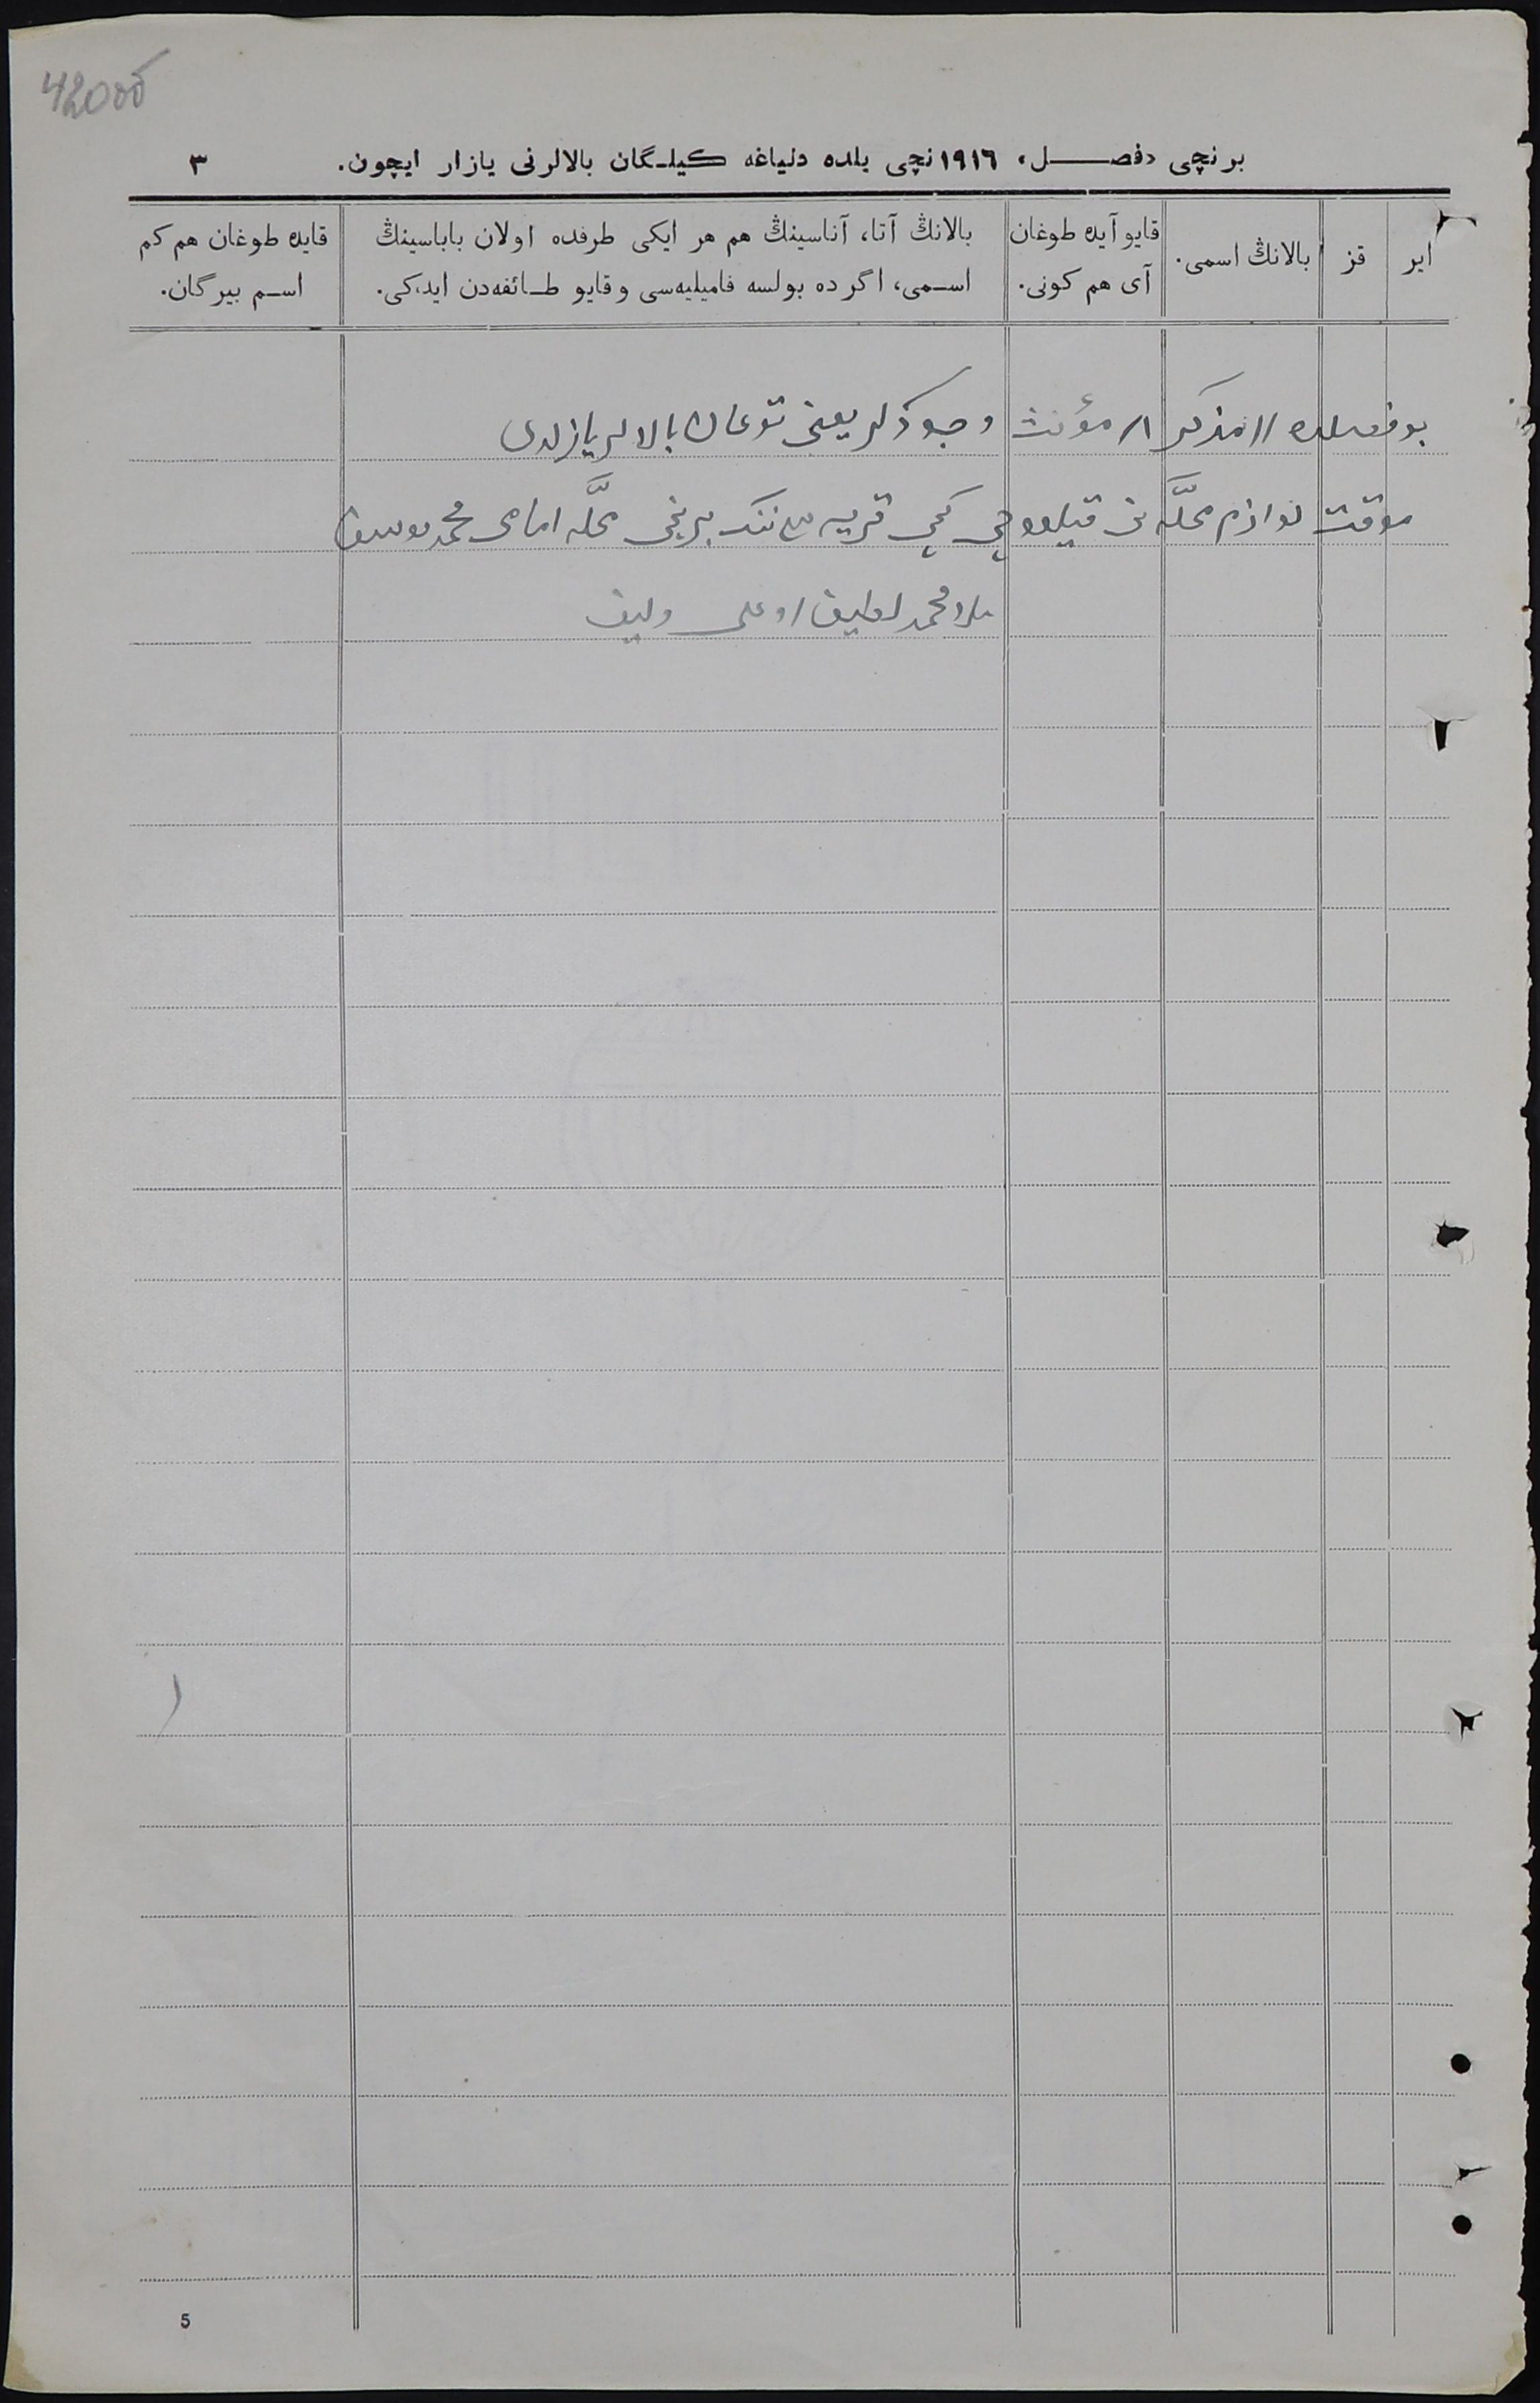 420об
برنچی «فصل» ١٩١٦نچی یلده دنیاغه کیلگان بالالرنی یازار ایچون. ٣
ایر
قز
بالانڭ اسمی.
قایو آیده طوغان
آی هم کونی.
بالانڭ آتا، آناسینڭ هم هر ایکی طرفده اولان باباسینڭ
اسمی، اگر ده بولسه فامیلیه‌سی و قایو طائفه‌دن ایدکی.
قایده طوغان هم کم
اسم بیرگان.
بو فصلده ١١ مذکر ١١ مؤنث و جو ذکر یعنی توغان بالالر یازلدی
موقت لوازم محلّه نی کچی قریه سی ننک برنجی محلّه امامی محمد یوسف
ملا محمد لطیف اوغلی ولیف
5